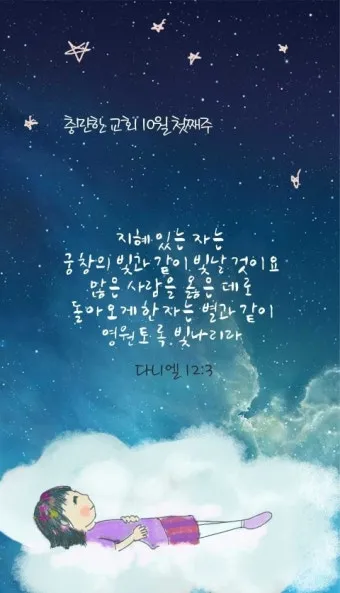 충만한 교회 10월 첫째주
지혜 있는 자는
궁창의 빛과 같이 빛날 것이요
많은 사람을 옳은 데로
돌아오게 한 자는 별과 같이
영원토록 빛나리라
다니엘 12:3